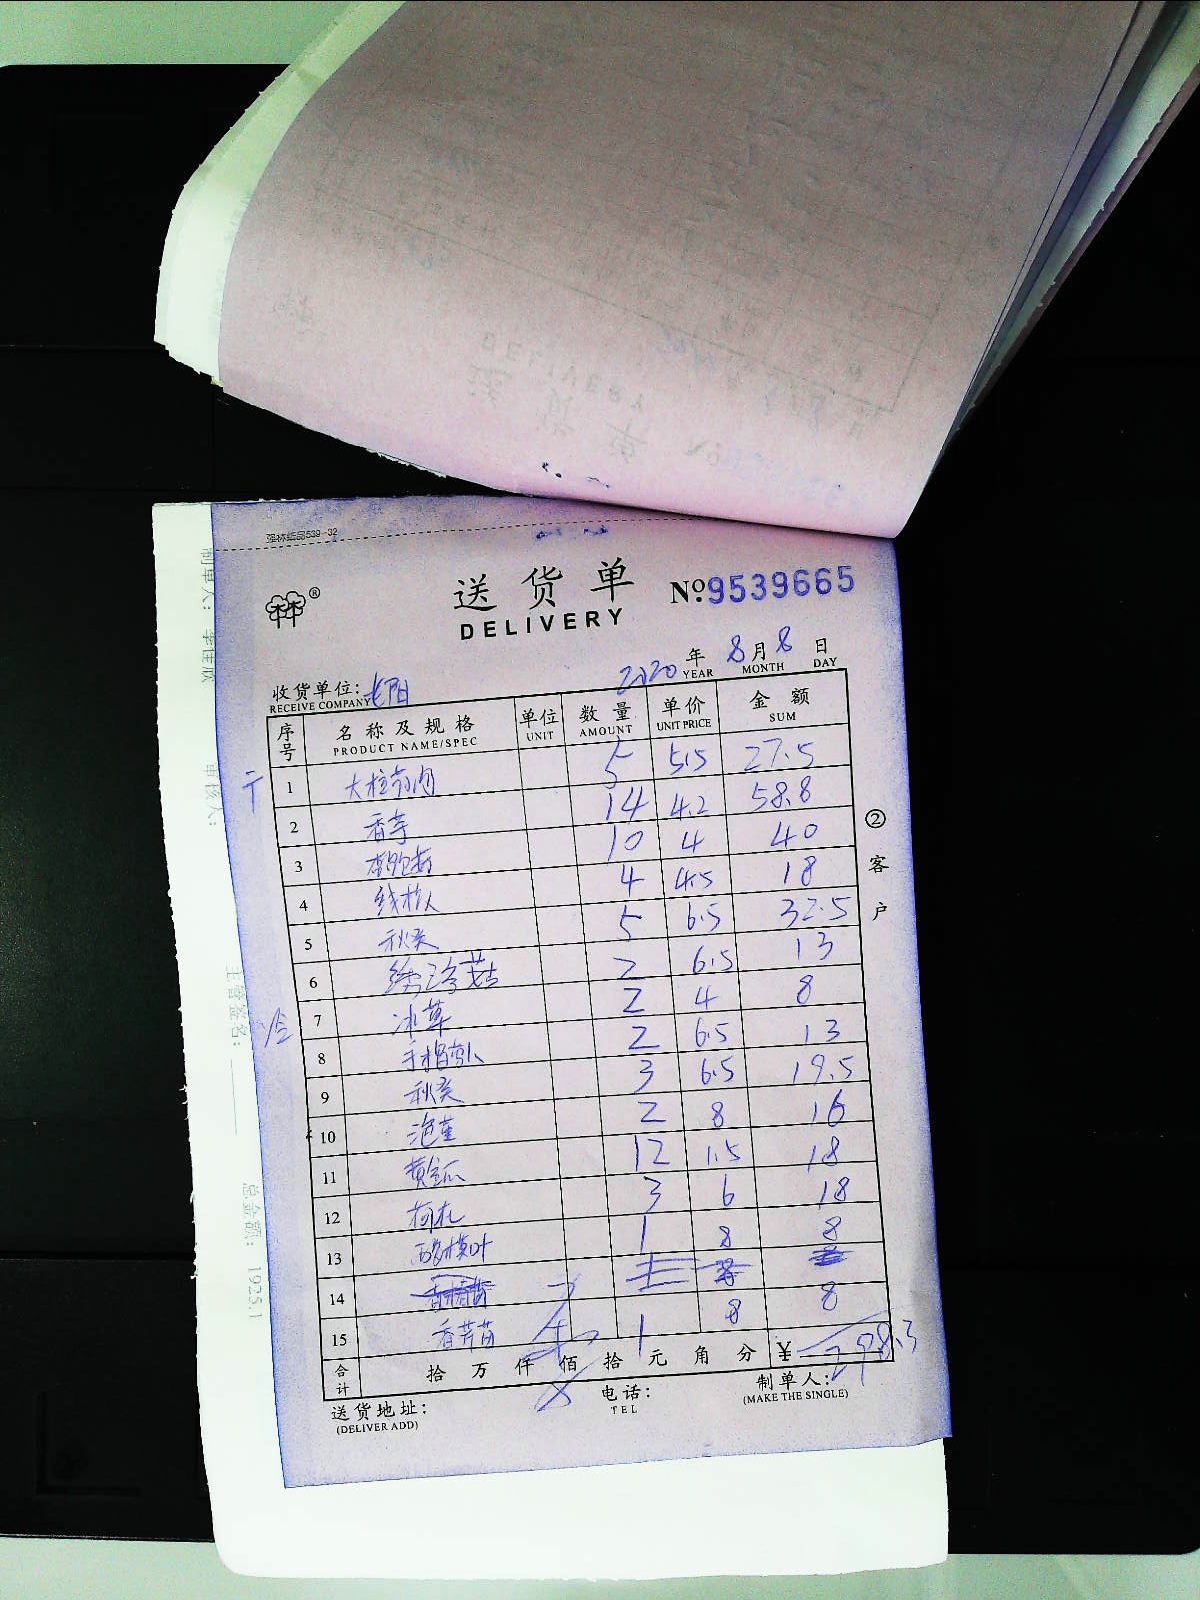 强林纸品539-32
送货单
DELIVERY
№9539665
2020年 8月8日
YEAR MONTH DAY
收货单位:
RECEIVE COMPANY
序号 名称及规格 单位 数量 单价 金额
PRODUCT NAME/SPEC UNIT AMOUNT UNIT PRICE SUM
1 5 5.5 27.5
2 香芋 14 4.2 58.8
3 10 4 40
4 线椒 4 4.5 18
5 秋葵 5 6.5 32.5
6 2 6.5 13
7 冰草 2 4 8
8 2 6.5 13
9 秋葵 3 6.5 19.5
10 2 8 16
11 黄金瓜 12 1.5 18
12 3 6 18
13 1 8 8
14
15 香芹苗 1 8 8
合计 拾万仟佰拾元角分 ¥ 298.3
送货地址:
(DELIVER ADD)
电话:
TEL
制单人:
(MAKE THE SINGLE)
②客户
干
冷
制单人: 李佳欣
审核人:
主管签名:
总金额: 1925.1